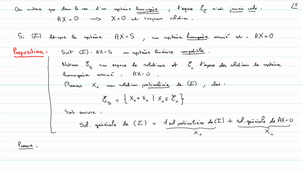 On notera que dans le cas d'un système homogène, l'espace ℰ_Σ n'est jamais vide.
AX = 0 ⟹ X = 0 est toujours solution.
Si (Σ) désigne AX = S, un système homogène associé est : AX = 0
Proposition : Soit (Σ) : AX = S un système linéaire compatible.
Notons ℰ_S son espace de solutions et ℰ_0 l'espace des solutions du système
homogène associé : AX = 0.
Prenons X_0 une solution particulière de (Σ), alors :
ℰ_S = { X_0 + X_h | X_h ∈ ℰ_0 }
Sol. générale de (Σ) = 1 sol particulière de (Σ) + sol. générale de AX = 0
X_0 X_h
Preuve :